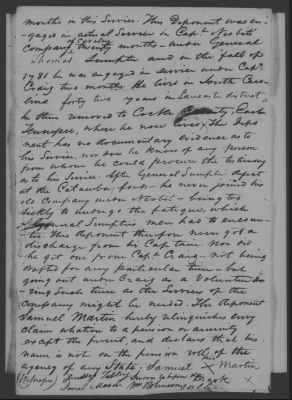 months in this Service. This Deponent was en-
gaged in actual Service in Capt. Nesbits
company of Cavalry twenty months under General
Thomas Sumpter and in the fall of
1781 he was engaged in service under Capt.
Craig two months He lived in South Caro-
lina forty two years in Lancaster district
he then removed to Cocke County, East
Tennessee, where he now lives This Depo-
nent has no documentary evidence as to
his Service nor does he know of any person
from whom he could procure the testimony
as to his Service. After General Sumpters defeat
at the Catawba fords he never joined his
old Company under Nesbit being too
sickly to undergo the fatigue, which
General Sumpters men had to encoun-
ter This deponent therefore never got a
discharge from his Captain. Nor did
he get one from Capt. Craig not being
drafted for any particular time but
going out under Craig as a Volunteer
such time as the Service of the
company might be needed. This deponent
Samuel Martin hereby relinquishes every
claim whatever to a pension or annuity
except the present, and declares that his
name is not on the pension roll of the
agency of any State, Samuel his X Martin
mark
Sworn to before